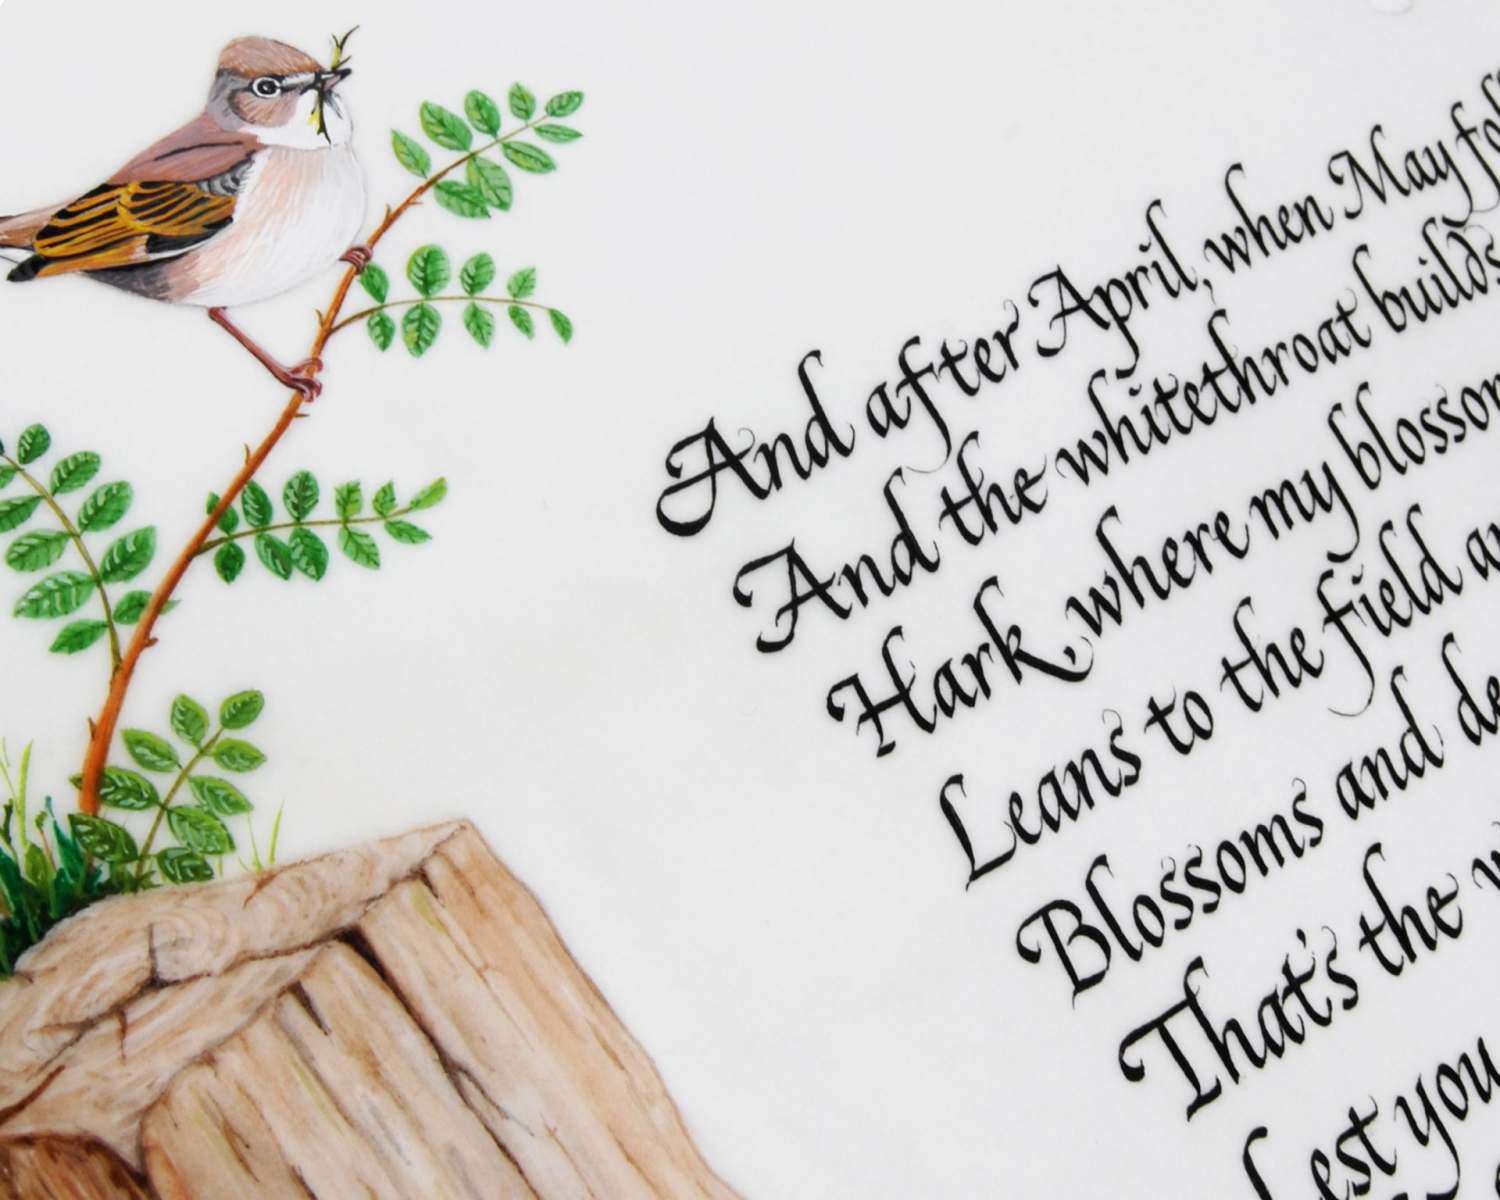 And after April, when May
And the whitethroat builds
Hark, where my
Leans to the field
Blossoms and
That's the
Lest you